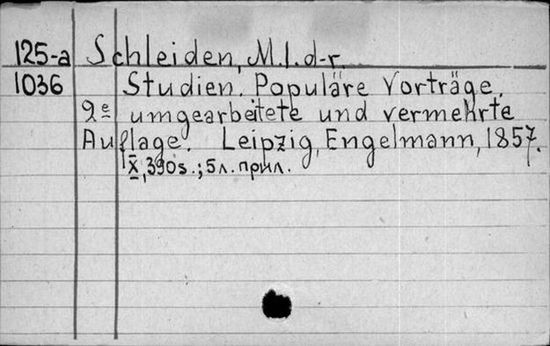 125-a Schleiden, M.J.d-r.
1036 Studien. Populäre Vorträge.
2e umgearbeitete und vermehrte
Auflage. Leipzig, Engelmann, 1857.
X, 390s.; 5л. прил.